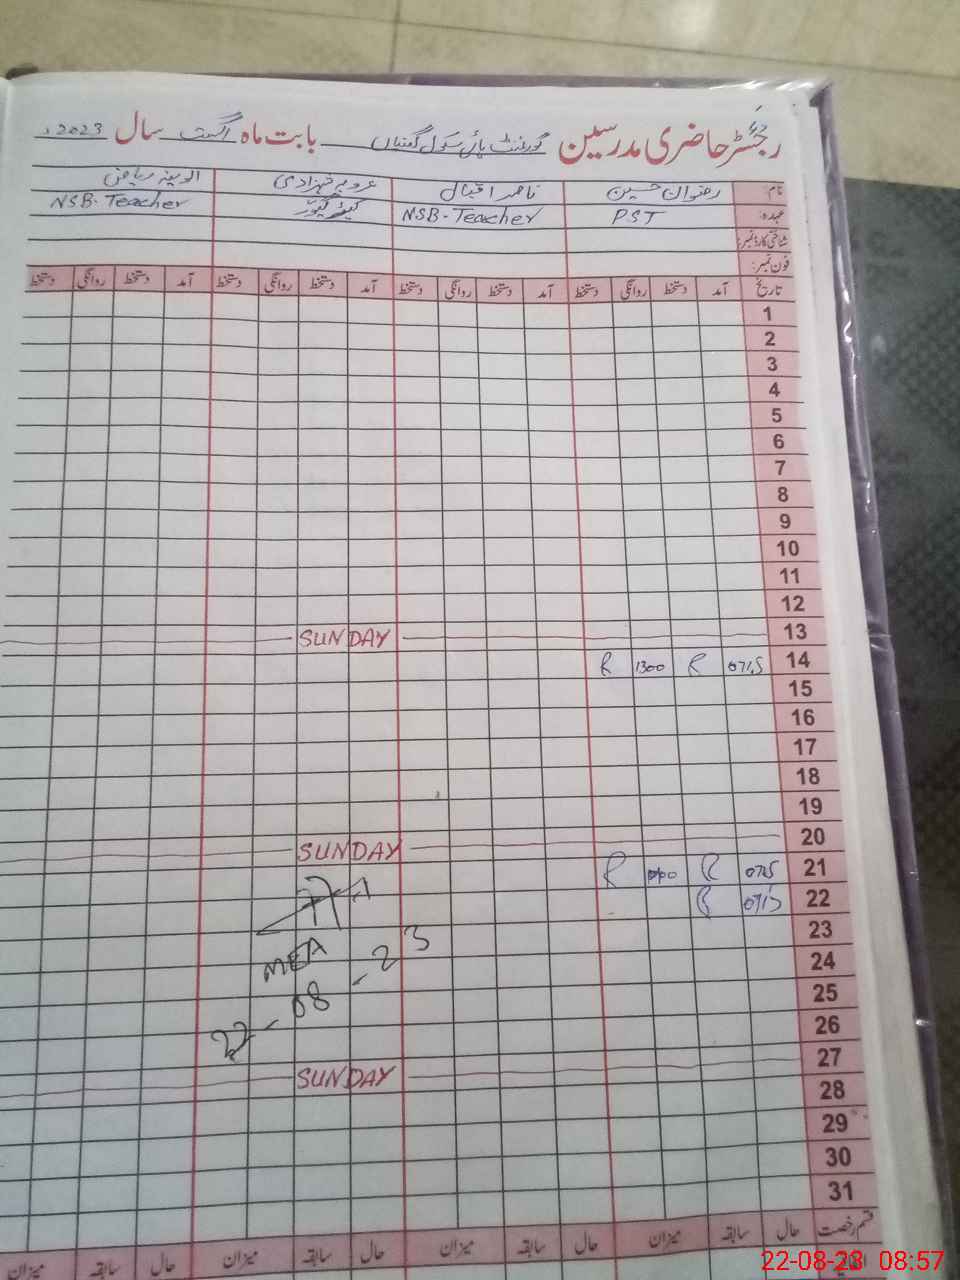 رجسٹر حاضری مدرسین گورنمنٹ ہائی سکول بابت ماہ اگست سال 2023ء
نام: رضوان حسین ناصر اقبال عروبہ شہزادی الوینہ ریاض
عہدہ: PST NSB-Teacher NSB-Teacher
شناختی کارڈ نمبر:
فون نمبر:
تاریخ آمد دستخط روانگی دستخط آمد دستخط روانگی دستخط آمد دستخط روانگی دستخط آمد دستخط روانگی دستخط
1
2
3
4
5
6
7
8
9
10
11
12
13 SUNDAY
14 0715 R 1300 R
15
16
17
18
19
20 SUNDAY
21 0715 R R
22 0715 R
23
24
25
26
27 SUNDAY
28
29
30
31
MEA
22-08-23
قسم رخصت حال سابقہ میزان حال سابقہ میزان حال سابقہ میزان حال سابقہ میزان
22-08-23 08:57